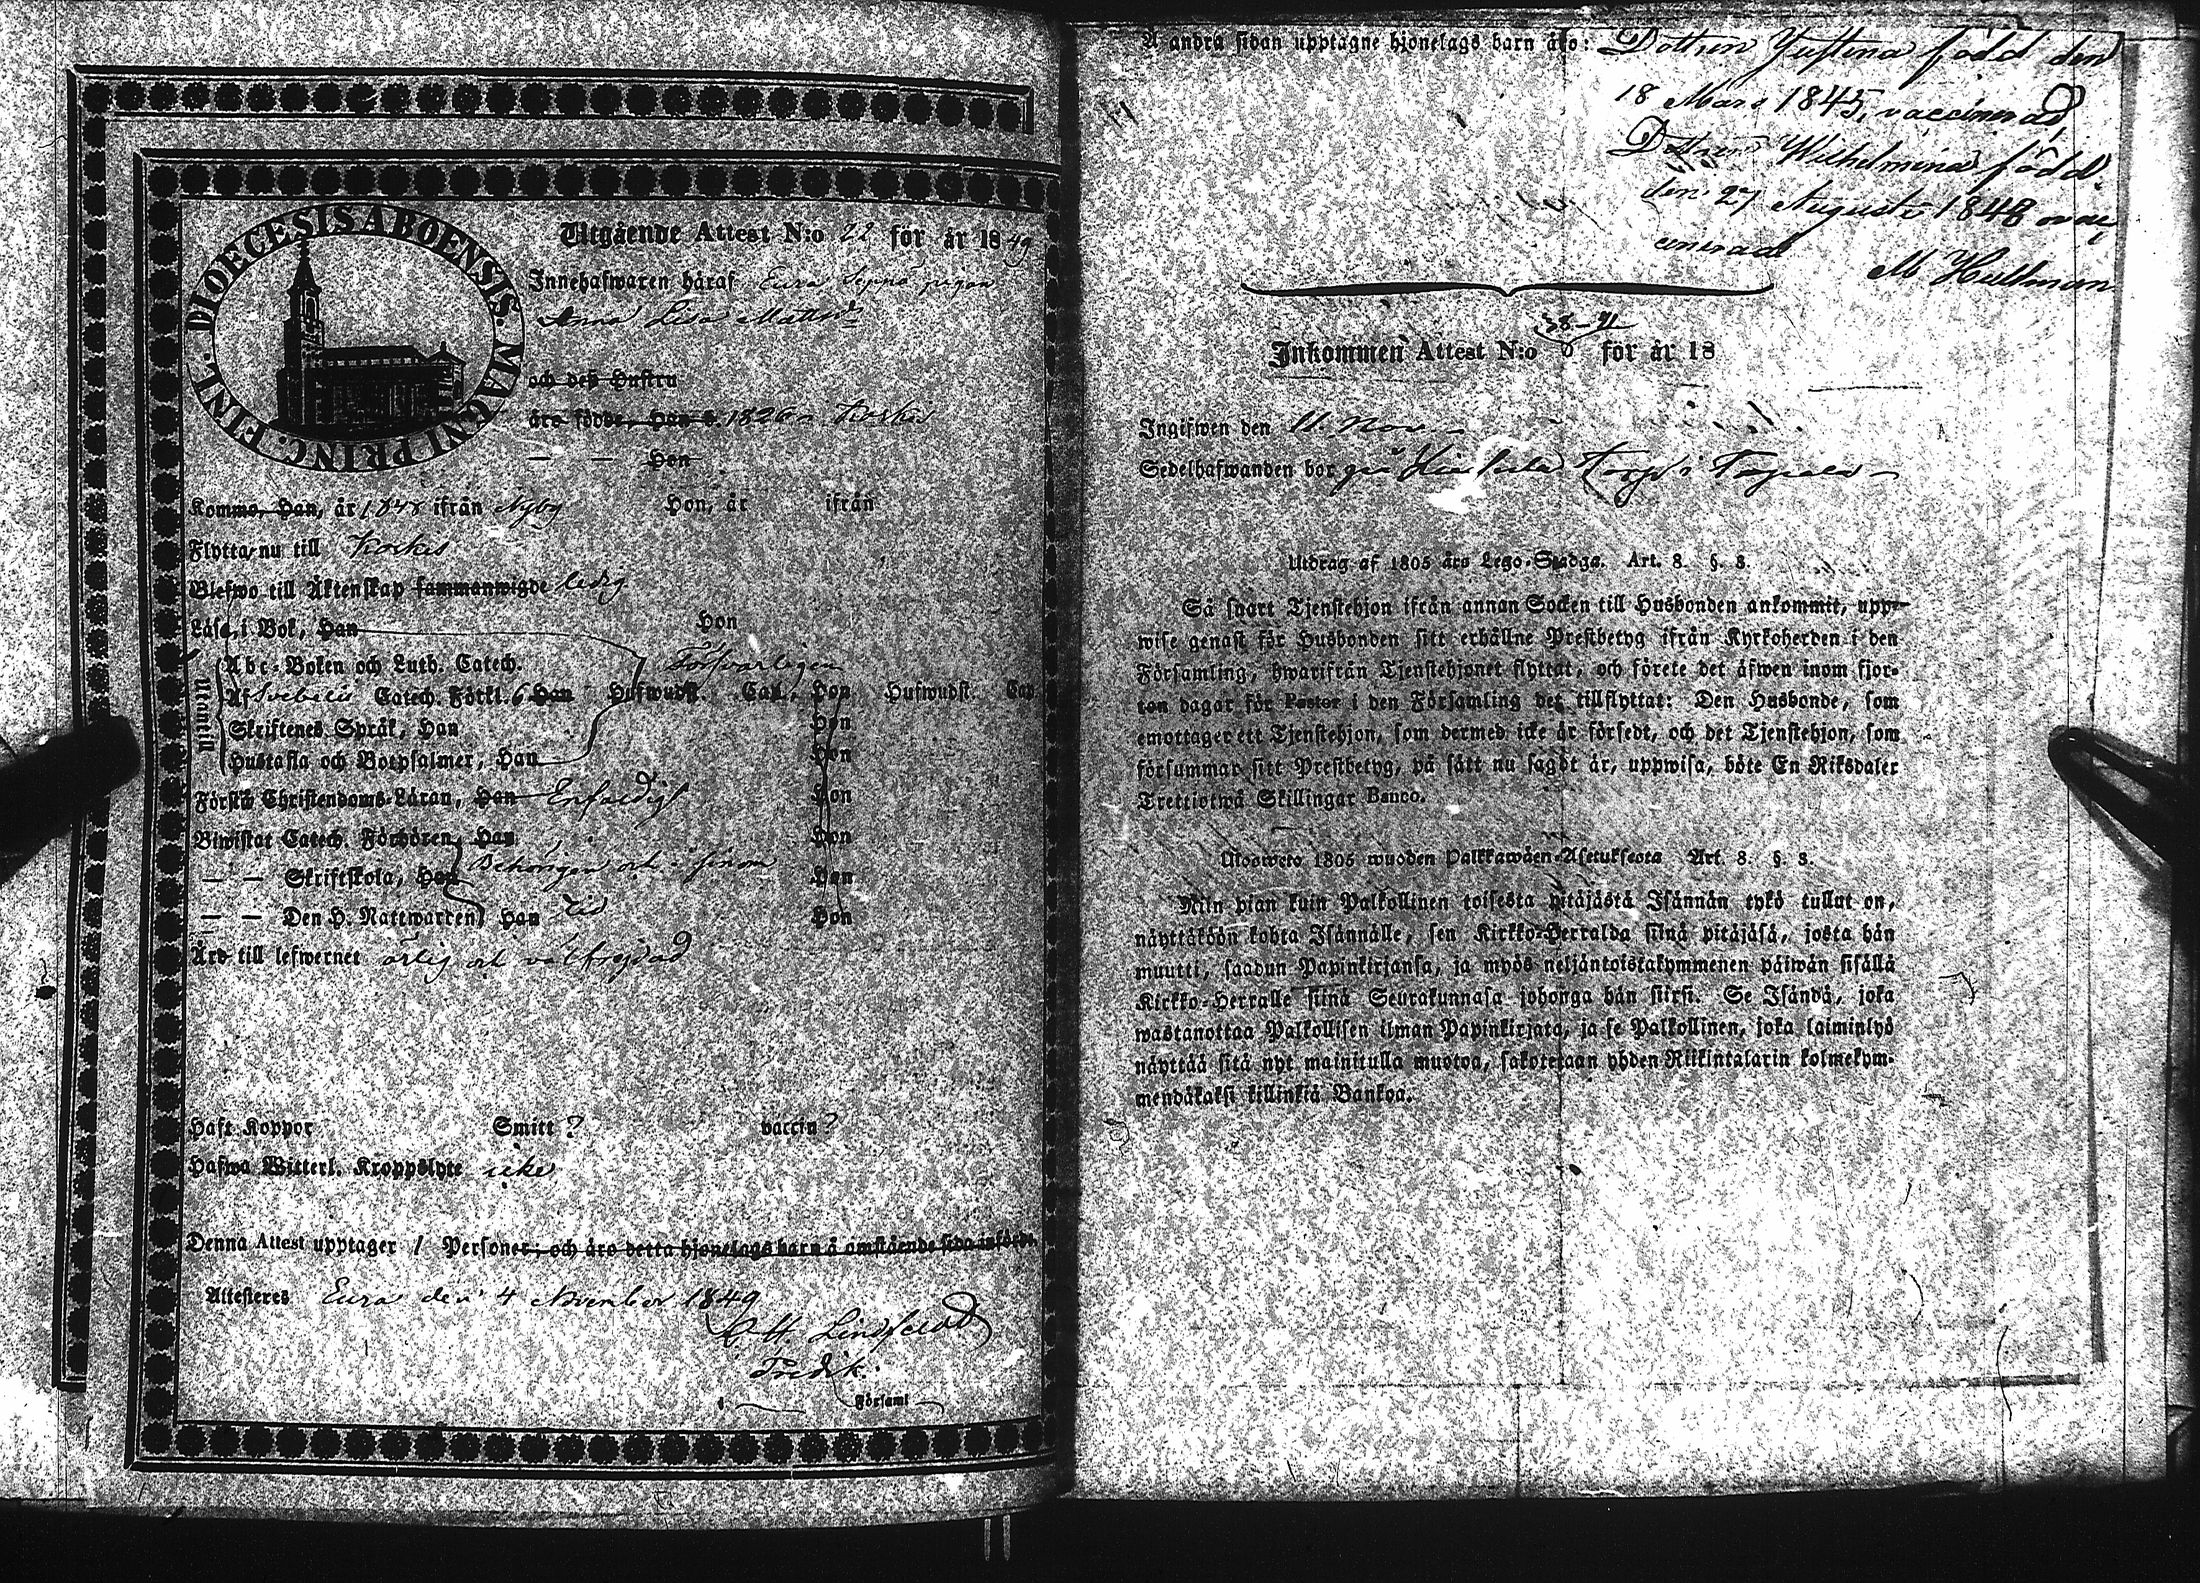 DIOECESIS ABOENSIS. MAGNI PRINC. FINL.
Utgående Attest N:o 22 för år 1849
Innehafwaren häraf Eura Seppä pigan
Anna Lisa Mattsd:r
och deß Hustru
äro födde, Han 1826 Koskis
— — Hon
Kommo, Han, år 1848 ifrån Nyby Hon, år ifrån
Flytta nu till Koskis
Blefwo till Äktenskap sammanwigde ledig
Läsa, i Bok, Han Hon
Utanell
Abc-Boken och Luth. Catech. Försvarligen
Af Svebelii Catech. Förkl. 6 Han Hufwudst. Cap., Hon Hufwudst. Cap
Skriftenes Språk, Han Hon
Hustafla och Botpsalmer, Han Hon
Förstå Christendoms-Läran, Han Enfaldigt Hon
Biwistat Catech. Förhören, Han Hon
— — Skriftskola, Han Behörigen och i sinom Hon
— — Den H. Nattwarren, Han tid Hon
Äro till lefwernet ärlig och välfrejdad
Haft Koppor Smitt? vaccin?
Hafwa Witterl. Kroppslyte icke
Denna Attest upptager 1 Personer, och äro detta hjonelags barn å omstående sida införde.
Attesteres Eura den 4 November 1849
Lindfeldt
Predik.
i Församl
Å andra sidan upptagne hjonelags barn äro: Dottren Justina född den
18 Mars 1845, vaccinerad
Dottren Wilhelmina född
den 27 Augusti 1848 ovac
cinerad
M Hultman
38-71
Inkommen Attest N:o för år 18
Ingifwen den 11 Nov.
Sedelhafwanden bor på torp i
Utdrag af 1805 års Lego-Stadga. Art. 8. §. 3.
Så snart Tjenstehjon ifrån annan Socken till Husbonden ankommit, upp-
wise genast för Husbonden sitt erhållne Prestbetyg ifrån Kyrkoherden i den
Församling, hwarifrån Tjenstehjonet flyttat, och förete det äfwen inom fjor-
ton dagar för Pastor i den Församling det tillflyttat: Den Husbonde, som
emottager ett Tjenstehjon, som dermed icke är försedt, och det Tjenstehjon, som
försummar sitt Prestbetyg, på sätt nu sagdt är, uppwisa, böte En Riksdaler
Trettiotwå Skillingar Banco.
Ulosweto 1805 wuoden Palkkawäen-Asetuksesta Art. 8. §. 3.
Niin pian kuin Palkollinen toisesta pitäjästä Isännän tykö tullut on,
näyttäköön kohta Isännälle, sen Kirkko-Herralda siinä pitäjäsä, josta hän
muutti, saadun Papinkirjansa, ja myös neljäntoistakymmenen päiwän sisällä
Kirkko-Herralle siinä Seurakunnasa johonga hän siirsi. Se Isändä, joka
wastanottaa Palkollisen ilman Papinkirjata, ja se Palkollinen, joka laiminlyö
näyttää sitä nyt mainitulla muotoa, sakotetaan yhden Riikintalarin kolmekym-
mendäkaksi killinkiä Bankoa.